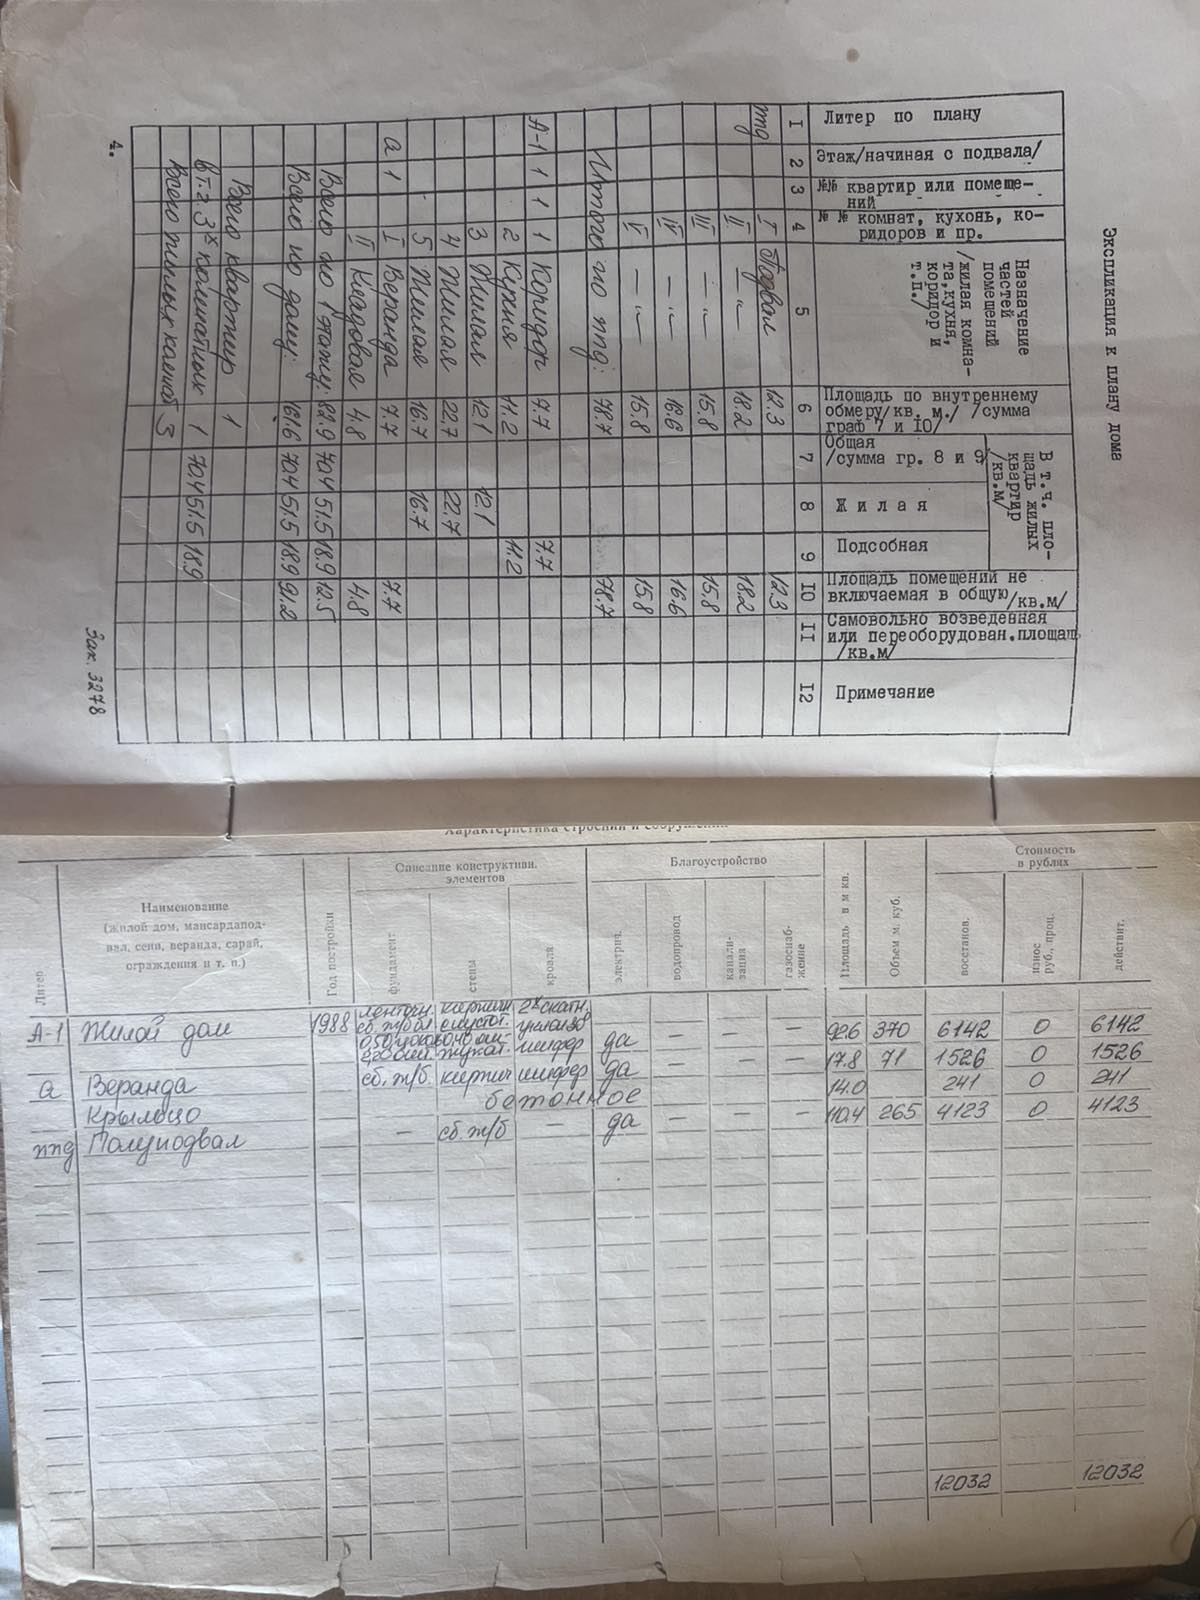 Экспликация к плану дома
Литер по плану
Этаж/начиная с подвала/
№№ квартир или помеще-
ний
№ № комнат, кухонь, ко-
ридоров и пр.
Назначение
частей
помещений
/жилая комна-
та,кухня,
коридор и
т.п./
Площадь по внутреннему
обмеру/кв. м./ /сумма
граф 7 и IO/
В т.ч. пло-
щадь жилых
квартир
/кв.м/
Общая
/сумма гр. 8 и 9/
Жилая
Подсобная
Площадь помещений не
включаемая в общую/кв.м/
Самовольно возведенная
или переоборудован.площадь
/кв.м/
Примечание
I 2 3 4 5 6 7 8 9 IO II I2
ппд I Подвал 12.3 12.3
II —"— 18.2 18.2
III —"— 15.8 15.8
IV —"— 16.6 16.6
V —"— 15.8 15.8
Итого по ппд: 78.7 78.7
А-1 1 1 1 Коридор 7.7 7.7
2 Кухня 11.2 11.2
3 Жилая 12.1 12.1
4 Жилая 22.7 22.7
5 Жилая 16.7 16.7
а 1 I Веранда 7.7 7.7
II Кладовая 4.8 4.8
Всего по 1 этажу: 82.9 70.4 51.5 18.9 12.5
Всего по дому: 161.6 70.4 51.5 18.9 91.2
Всего квартир 1
в т.г. 3х комнатных 1 70.4 51.5 18.9
Всего жилых комнат 3
4.
Зак. 3278
Характеристика строений и сооружений
Литер
Наименование
(жилой дом, мансарда, под-
вал, сени, веранда, сарай,
ограждения и т. п.)
Год постройки
Описание конструктивн.
элементов
фундамент
стены
кровля
Благоустройство
электрич.
водопровод
канали-
зация
газоснаб-
жение
Площадь в м кв.
Объем м. куб.
Стоимость
в рублях
восстанов.
износ
руб., проц.
действит.
А-1 Жилой дом 1988 ленточн. кирпичн 2х скатн.
сб. ж/б бл шифер да — — — 92.6 370 6142 0 6142
а Веранда сб. ж/б. кирпич шифер да — — — 17.8 71 1526 0 1526
Крыльцо бетонное 14.0 241 0 241
ппд Полуподвал — сб. ж/б — да — — — 110.4 265 4123 0 4123
12032 12032